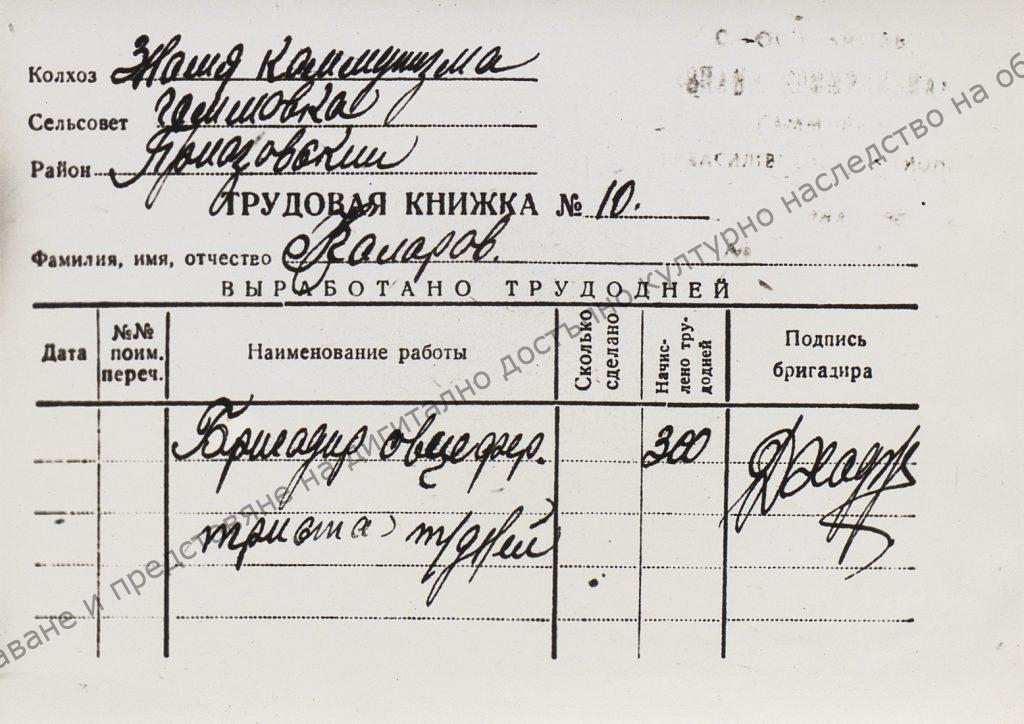 Колхоз Знамя коммунизма
Сельсовет гаммовка
Район Приазовский
ТРУДОВАЯ КНИЖКА № 10.
Фамилия, имя, отчество Каларов.
ВЫРАБОТАНО ТРУДОДНЕЙ
Дата №№ поим. переч. Наименование работы Сколько сделано Начис-лено тру-додней Подпись бригадира
Бригадир овцефер. 300
триста т/дней
аване и представяне на дигитално достъпно културно наследство на об